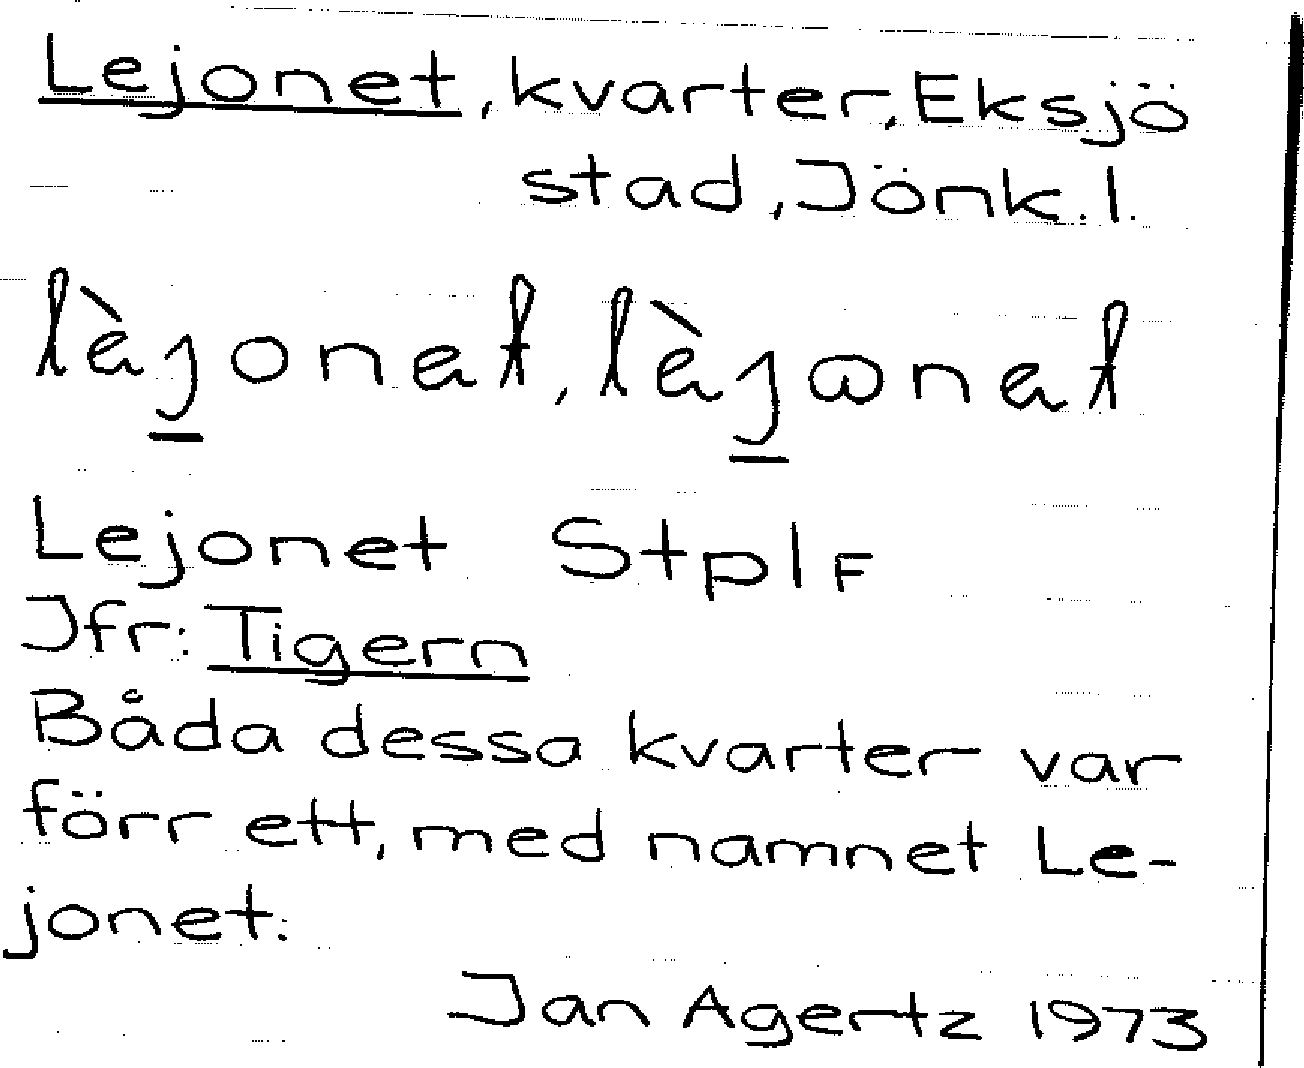 Lejonet, kvarter, Eksjö
stad, Jönk. l.
lèjonat, lèjωnat
Lejonet StplF
Jfr: Tigern
Båda dessa kvarter var
förr ett, med namnet Le-
jonet.
Jan Agertz 1973